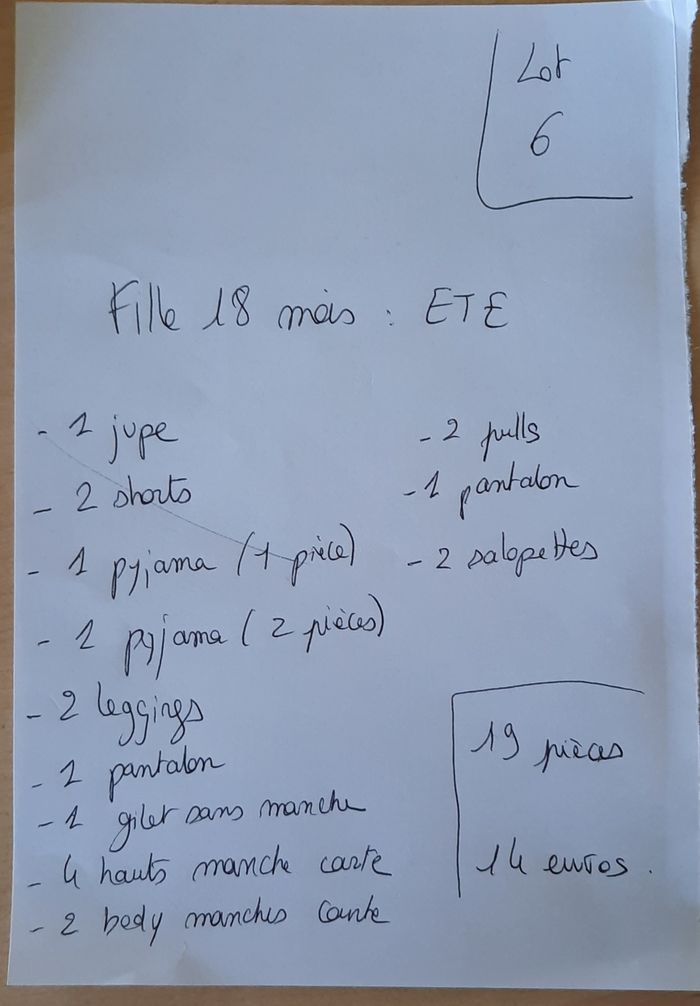 Lot
6
Fille 18 mois : ETE
- 1 jupe
- 2 shorts
- 1 pyjama (1 pièce)
- 1 pyjama (2 pièces)
- 2 leggings
- 1 pantalon
- 1 gilet sans manche
- 4 hauts manche courte
- 2 body manches courte
- 2 pulls
- 1 pantalon
- 2 salopettes
19 pièces
14 euros.